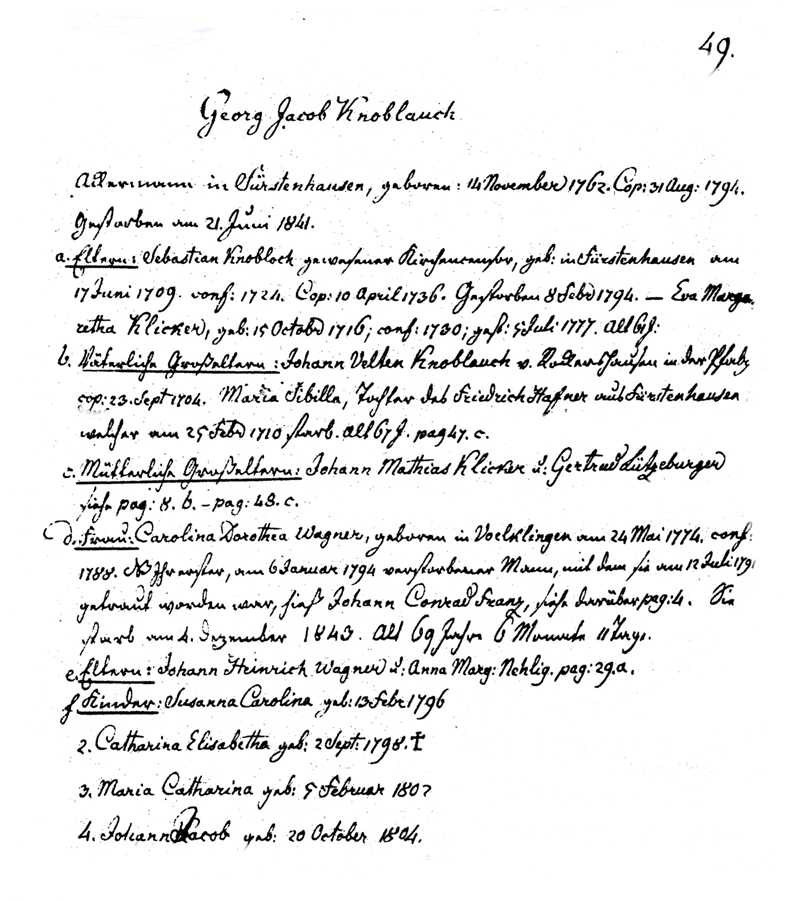 49.
Georg Jacob Knoblauch
Ackermann in Fürstenhausen, geboren: 14 November 1762. Cop: 31 Aug: 1794.
Gestorben am 21. Juni 1841.
a. Eltern: Sebastian Knobloch gewesener Kirchencensor, geb: in Fürstenhausen am
17 Juni 1709. conf: 1724. Cop: 10 April 1736. Gestorben 8 Febr 1794. — Eva Marga-
retha Klicker, geb: 15 Octobr 1716; conf: 1730; gest: 5 Juli 1777. Alt 61 J:
b. Väterliche Großeltern: Johann Velten Knoblauch v. Rockershausen in der Pfalz
cop: 23. Sept 1704. Maria Sibilla, Tochter des Friedrich Hafner aus Fürstenhausen
welcher am 25 Febr 1710 starb. Alt 67 J. pag 47. c.
c. Mütterliche Großeltern: Johann Mathias Klicker u: Gertrud Lützeburger
siehe pag: 8. b. – pag: 48. c.
d. Frau: Carolina Dorothea Wagner, geboren in Voelklingen am 24 Mai 1774, conf:
1788. NB Ihr erster, am 6 Januar 1794 verstorbener Mann, mit dem sie am 12 Juli 1791
getraut worden war, hieß Johann Conrad Franz, siehe darüber pag: 4. Sie
starb am 4. Dezember 1843. Alt 69 Jahre 6 Monate 11 Tage.
e. Eltern: Johann Heinrich Wagner u: Anna Marg: Nehlig. pag: 29. a.
f Kinder: Susanna Carolina geb: 13 Febr 1796
2. Catharina Elisabetha geb: 2 Sept: 1798. †
3. Maria Catharina geb: 5 Februar 1802
4. Johann Jacob geb: 20 October 1804.